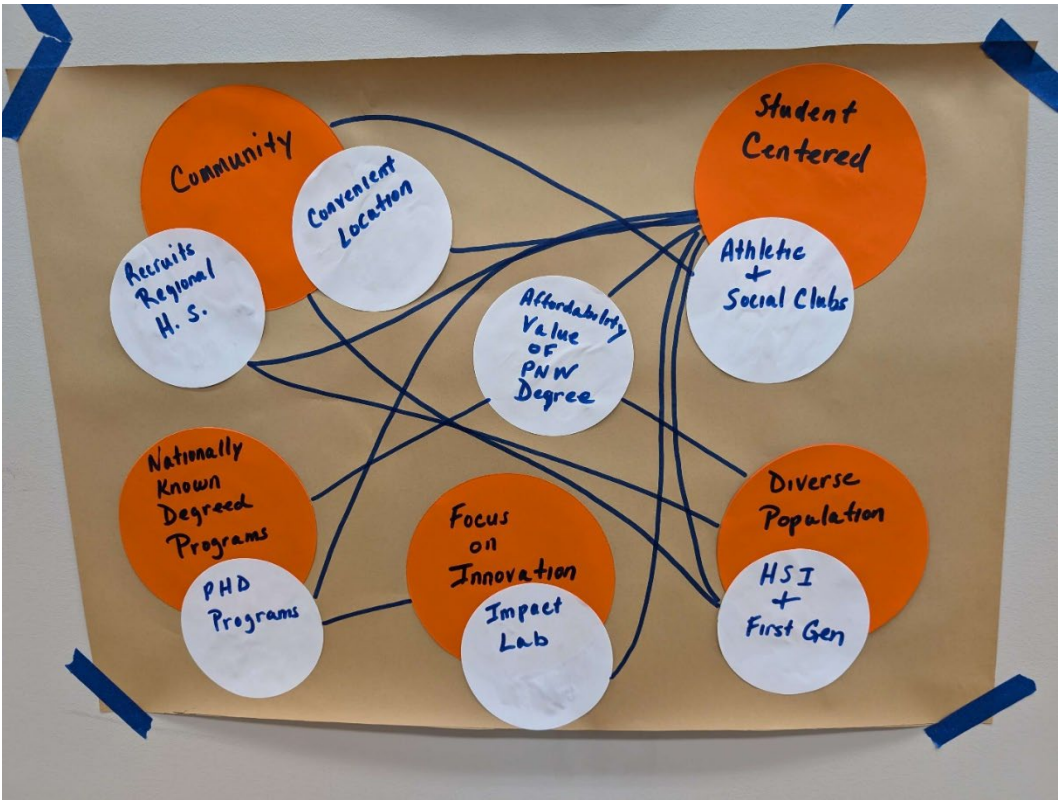 Community
Convenient
Location
Recruits
Regional
H. S.
Student
Centered
Athletic
+
Social Clubs
Affordability
Value
OF
PNW
Degree
Nationally
Known
Degreed
Programs
PHD
Programs
Focus
on
Innovation
Impact
Lab
Diverse
Population
HSI
+
First Gen